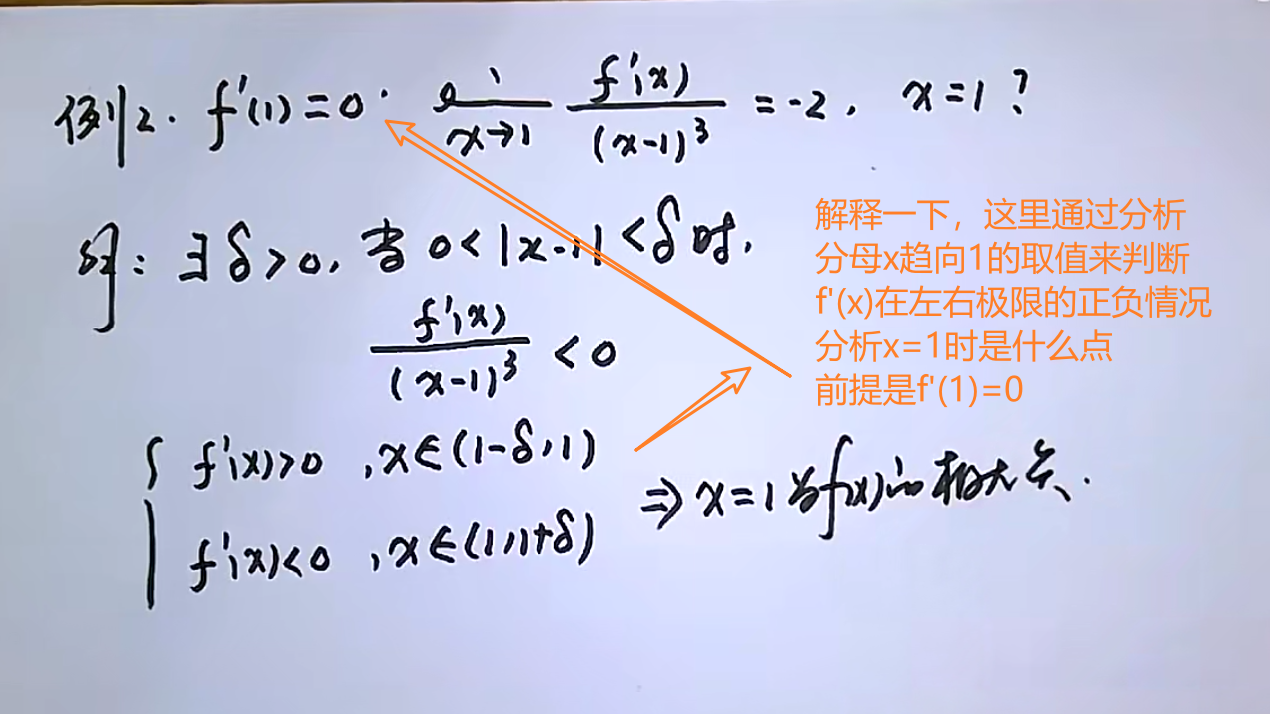 例2. f'(1)=0. lim x→1 f'(x)/(x-1)³ = -2, x=1?
解: ∃δ>0, 当 0<|x-1|<δ时,
f'(x)/(x-1)³ < 0
{ f'(x)>0 , x∈(1-δ,1)
f'(x)<0 , x∈(1,1+δ)
⇒ x=1为f(x)的极大点.
解释一下，这里通过分析
分母x趋向1的取值来判断
f'(x)在左右极限的正负情况
分析x=1时是什么点
前提是f'(1)=0